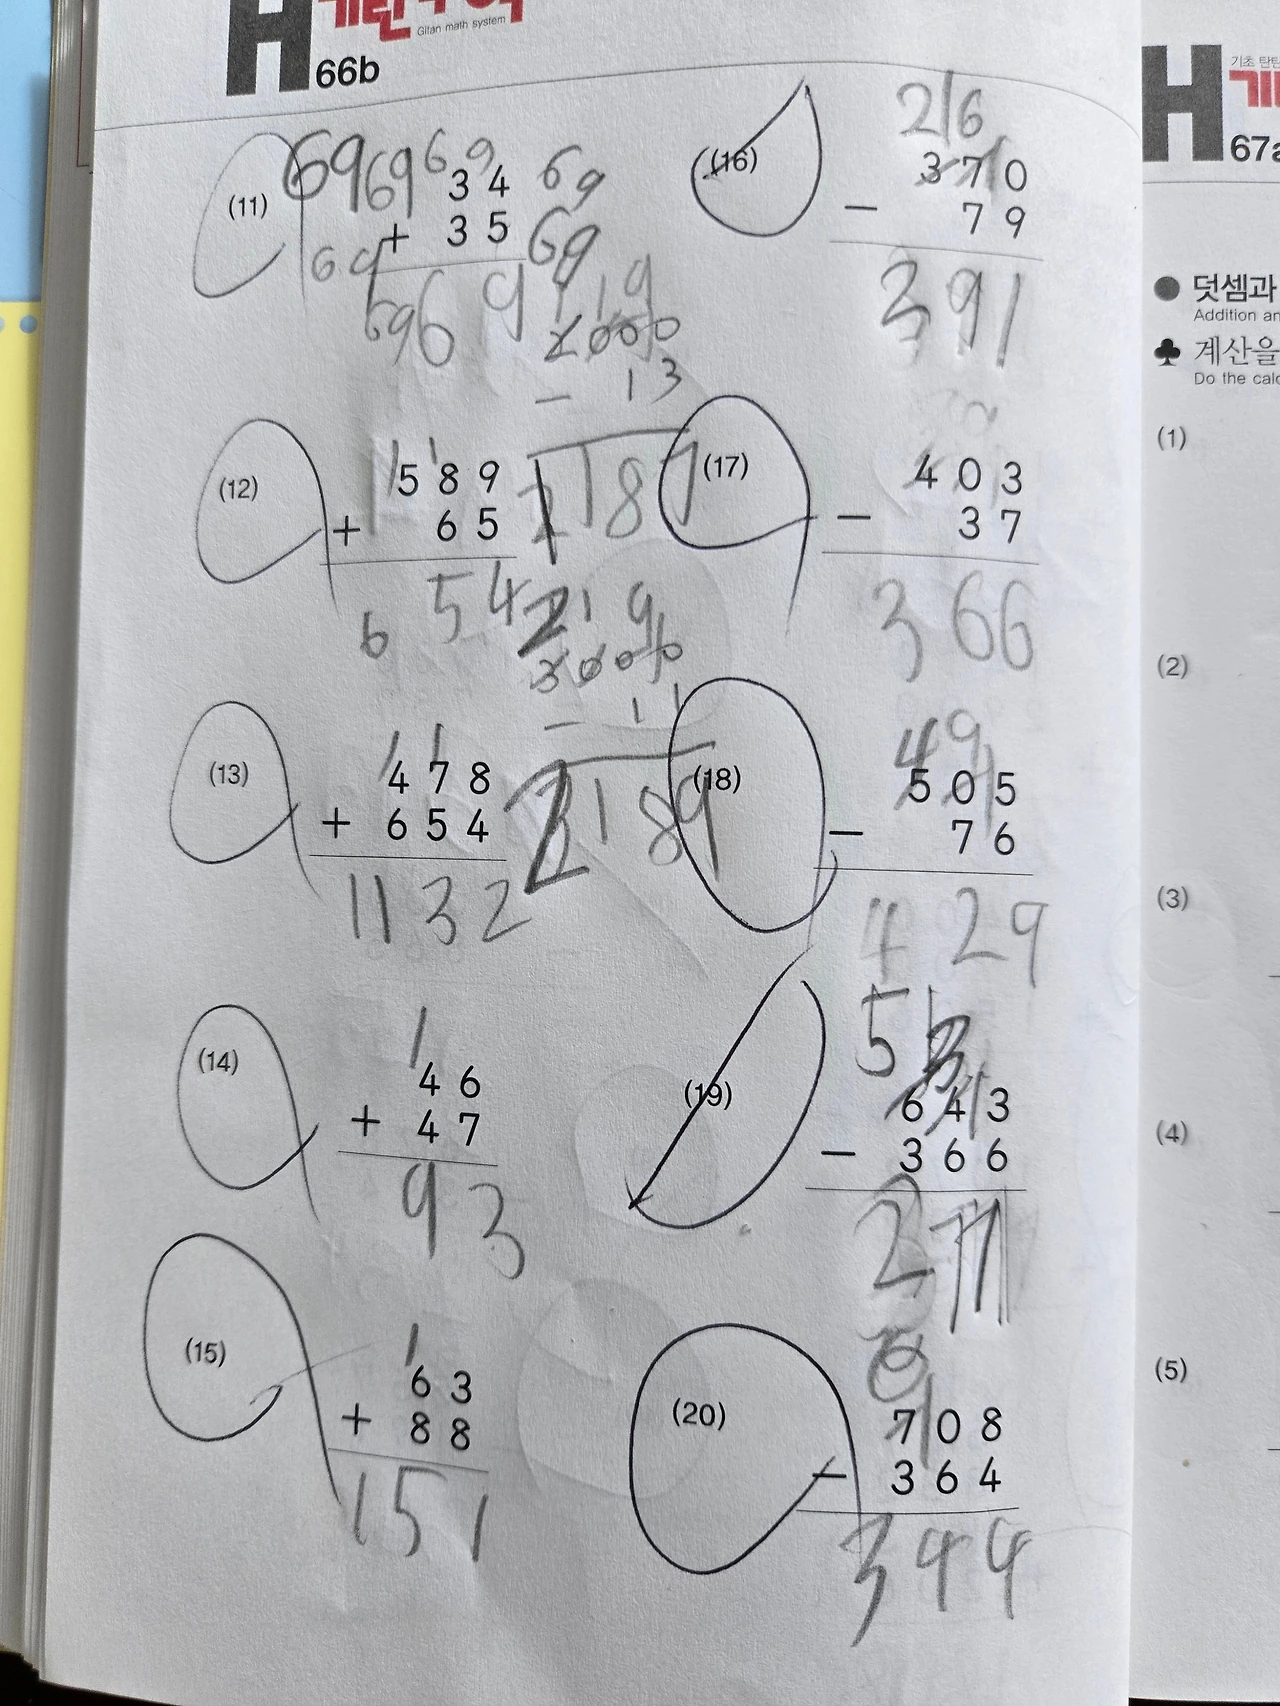 H
Gitan math system
66b
(11)
69 69 69
3 4
69
+ 3 5
69
69
69
6 9
(12)
1 1
5 8 9
+ 6 5
6 5 4
(13)
1 1
4 7 8
+ 6 5 4
1132
(14)
1
4 6
+ 4 7
9 3
(15)
1
6 3
+ 8 8
151
1 1 9
2000
- 1 3
2187
2 1 9
3000
- 1 1
2189
(16)
2 16
3 7 0
- 7 9
391
(17)
4 0 3
- 3 7
366
(18)
4 9
5 0 5
- 7 6
429
(19)
5 13
6 4 3
- 3 6 6
277
(20)
6
7 0 8
- 3 6 4
344
H
기초 탄탄
67a
● 덧셈과
Addition an
♣ 계산을
Do the calc
(1)
(2)
(3)
(4)
(5)